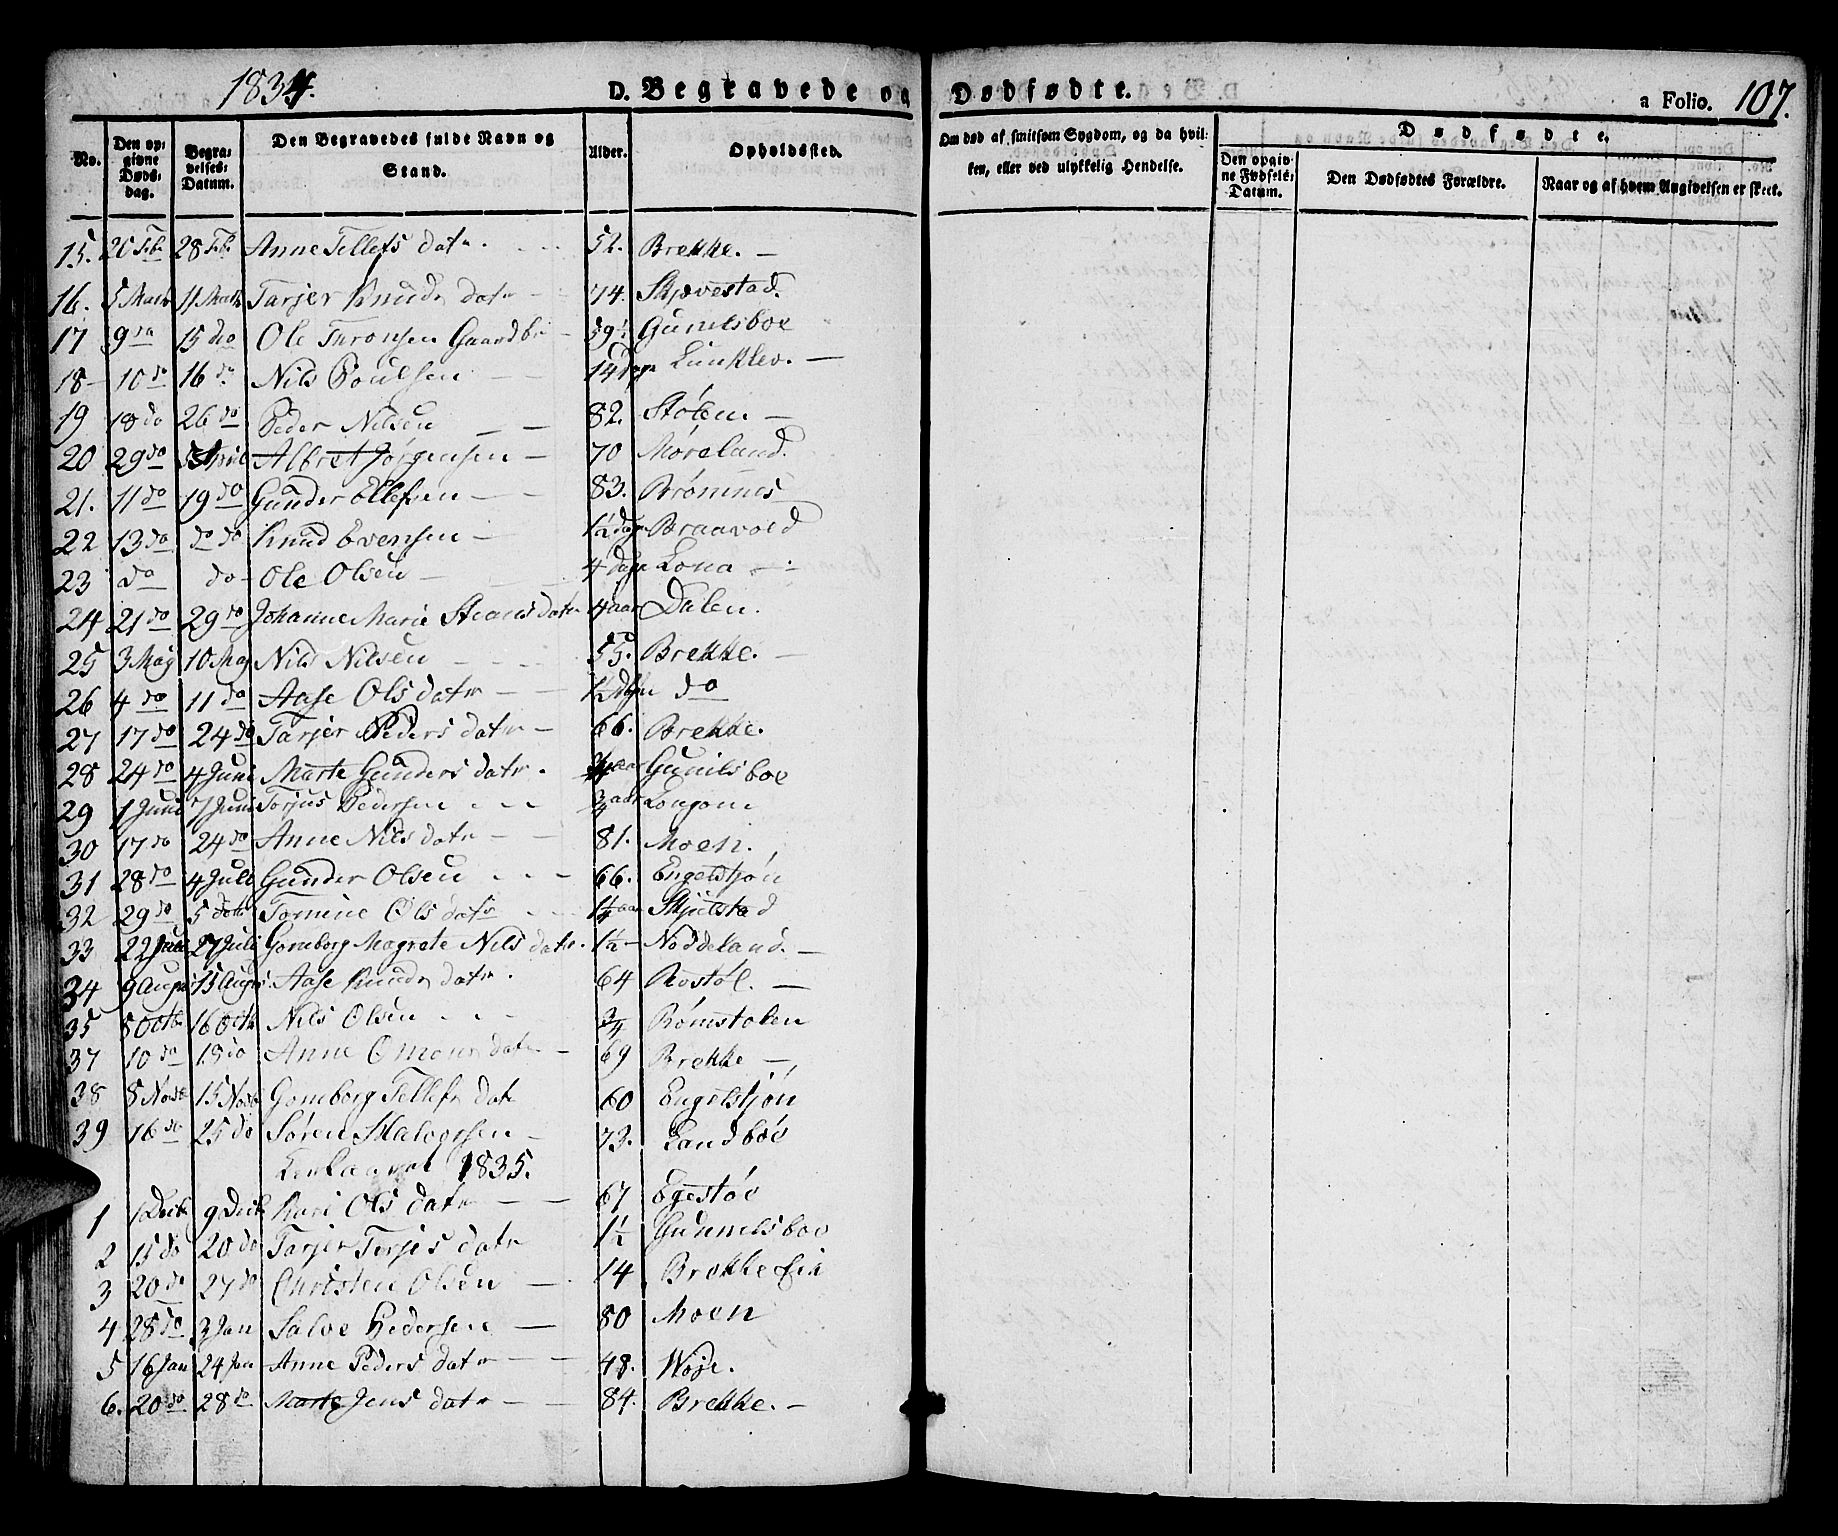 1834.
D. Begravede og Dødfødte.
a Folio. 107.
No. Den opgivne Døds-dag. Begravelses-Datum. Den Begravedes fulde Navn og Stand. Alder. Opholdssted. Om død af smitsom Sygdom, og da hvilken, eller ved ulykkelig Hendelse. Dødfødte. Den opgivne Fødsels-Datum. Den Dødfødtes Forældre. Naar og af hvem Angivelsen er skeet.
15. 20 Feb 28 Feb Anne Tellefs datr. 52. Brekke. —
16. 5 Marts 11 Marts Tarjer Knuds datr — 74. Skjævestad.
17 9 do 15 do Ole Thronsen Gaardbr — 59½ Gunelsboe
18 — 10 do 16 do Nils Poulsen — 14 dage Lunklev. —
19 18 do 26 do Peder Nilsen — — 82. Stølen. —
20 29 do 5 April Albret Jørgensen — 70 Moreland.
21. 11 do 19 do Gunder Ellefsen — — 83. Brømnes
22 13 do do do Knud Evensen — 1½ dage Braavold
23 do do — Ole Olsen — 4 dage Lona —
24 21 do 29 do Johanne Marie Steansdatr 4 aar Dalen.
25 3 May 10 May Nils Nilsen — 55. Brekke. —
26 4 do 11 do Aase Ols datr — — ½ dage do
27 17 do 24 do Tarjer Peders datr — 66. Brekke.
28 24 do 4 Juni Marte Gunders datr. aar Gunilsboe
29 1 Juni 7 Juni Torjus Pedersen ¾ aar Longom
30 17 do 24 do Anne Nils datr — — 81. Moen.
31 28 do 4 Juli Gunder Olsen 66. Engelstjøn
32 29 do 5 do Tomine Ols datr 1¼ aar Skjulstad
33 22 Juli 27 Juli Gonborg Magrete Nils datr. 1½ — Noddeland. —
34 9 August 15 August Aase Knuds datr. 64 Rostøl. —
35 5 Octb 16 Octb Nils Olsen ¾ Romstolen
37 10 do 18 do Anne Omons datr — 69 Brekke —
38 8 Novb 15 Novb Gonborg Tellefs datr 60 Engelstjøn
39 16 do 25 do Søren Halvorsen — 73. Landboe
Kirkeaaret 1835.
1 1 Decb 9 Decb Kari Ols datr — — 67 Egestøe
2 15 do 20 do Tarjer Terjes datr 1½ Gunnelsboe
3 20 do 27 do Christen Olsen — 14 Brekke Eie
4 28 do 3 Jan Salve Pedersen — 80 Moen
5 16 Jan 24 Jan Anne Peders datr — — 48. Woje.
6. 20 do 28 do Marte Jens datr — — 84. Brekke. —